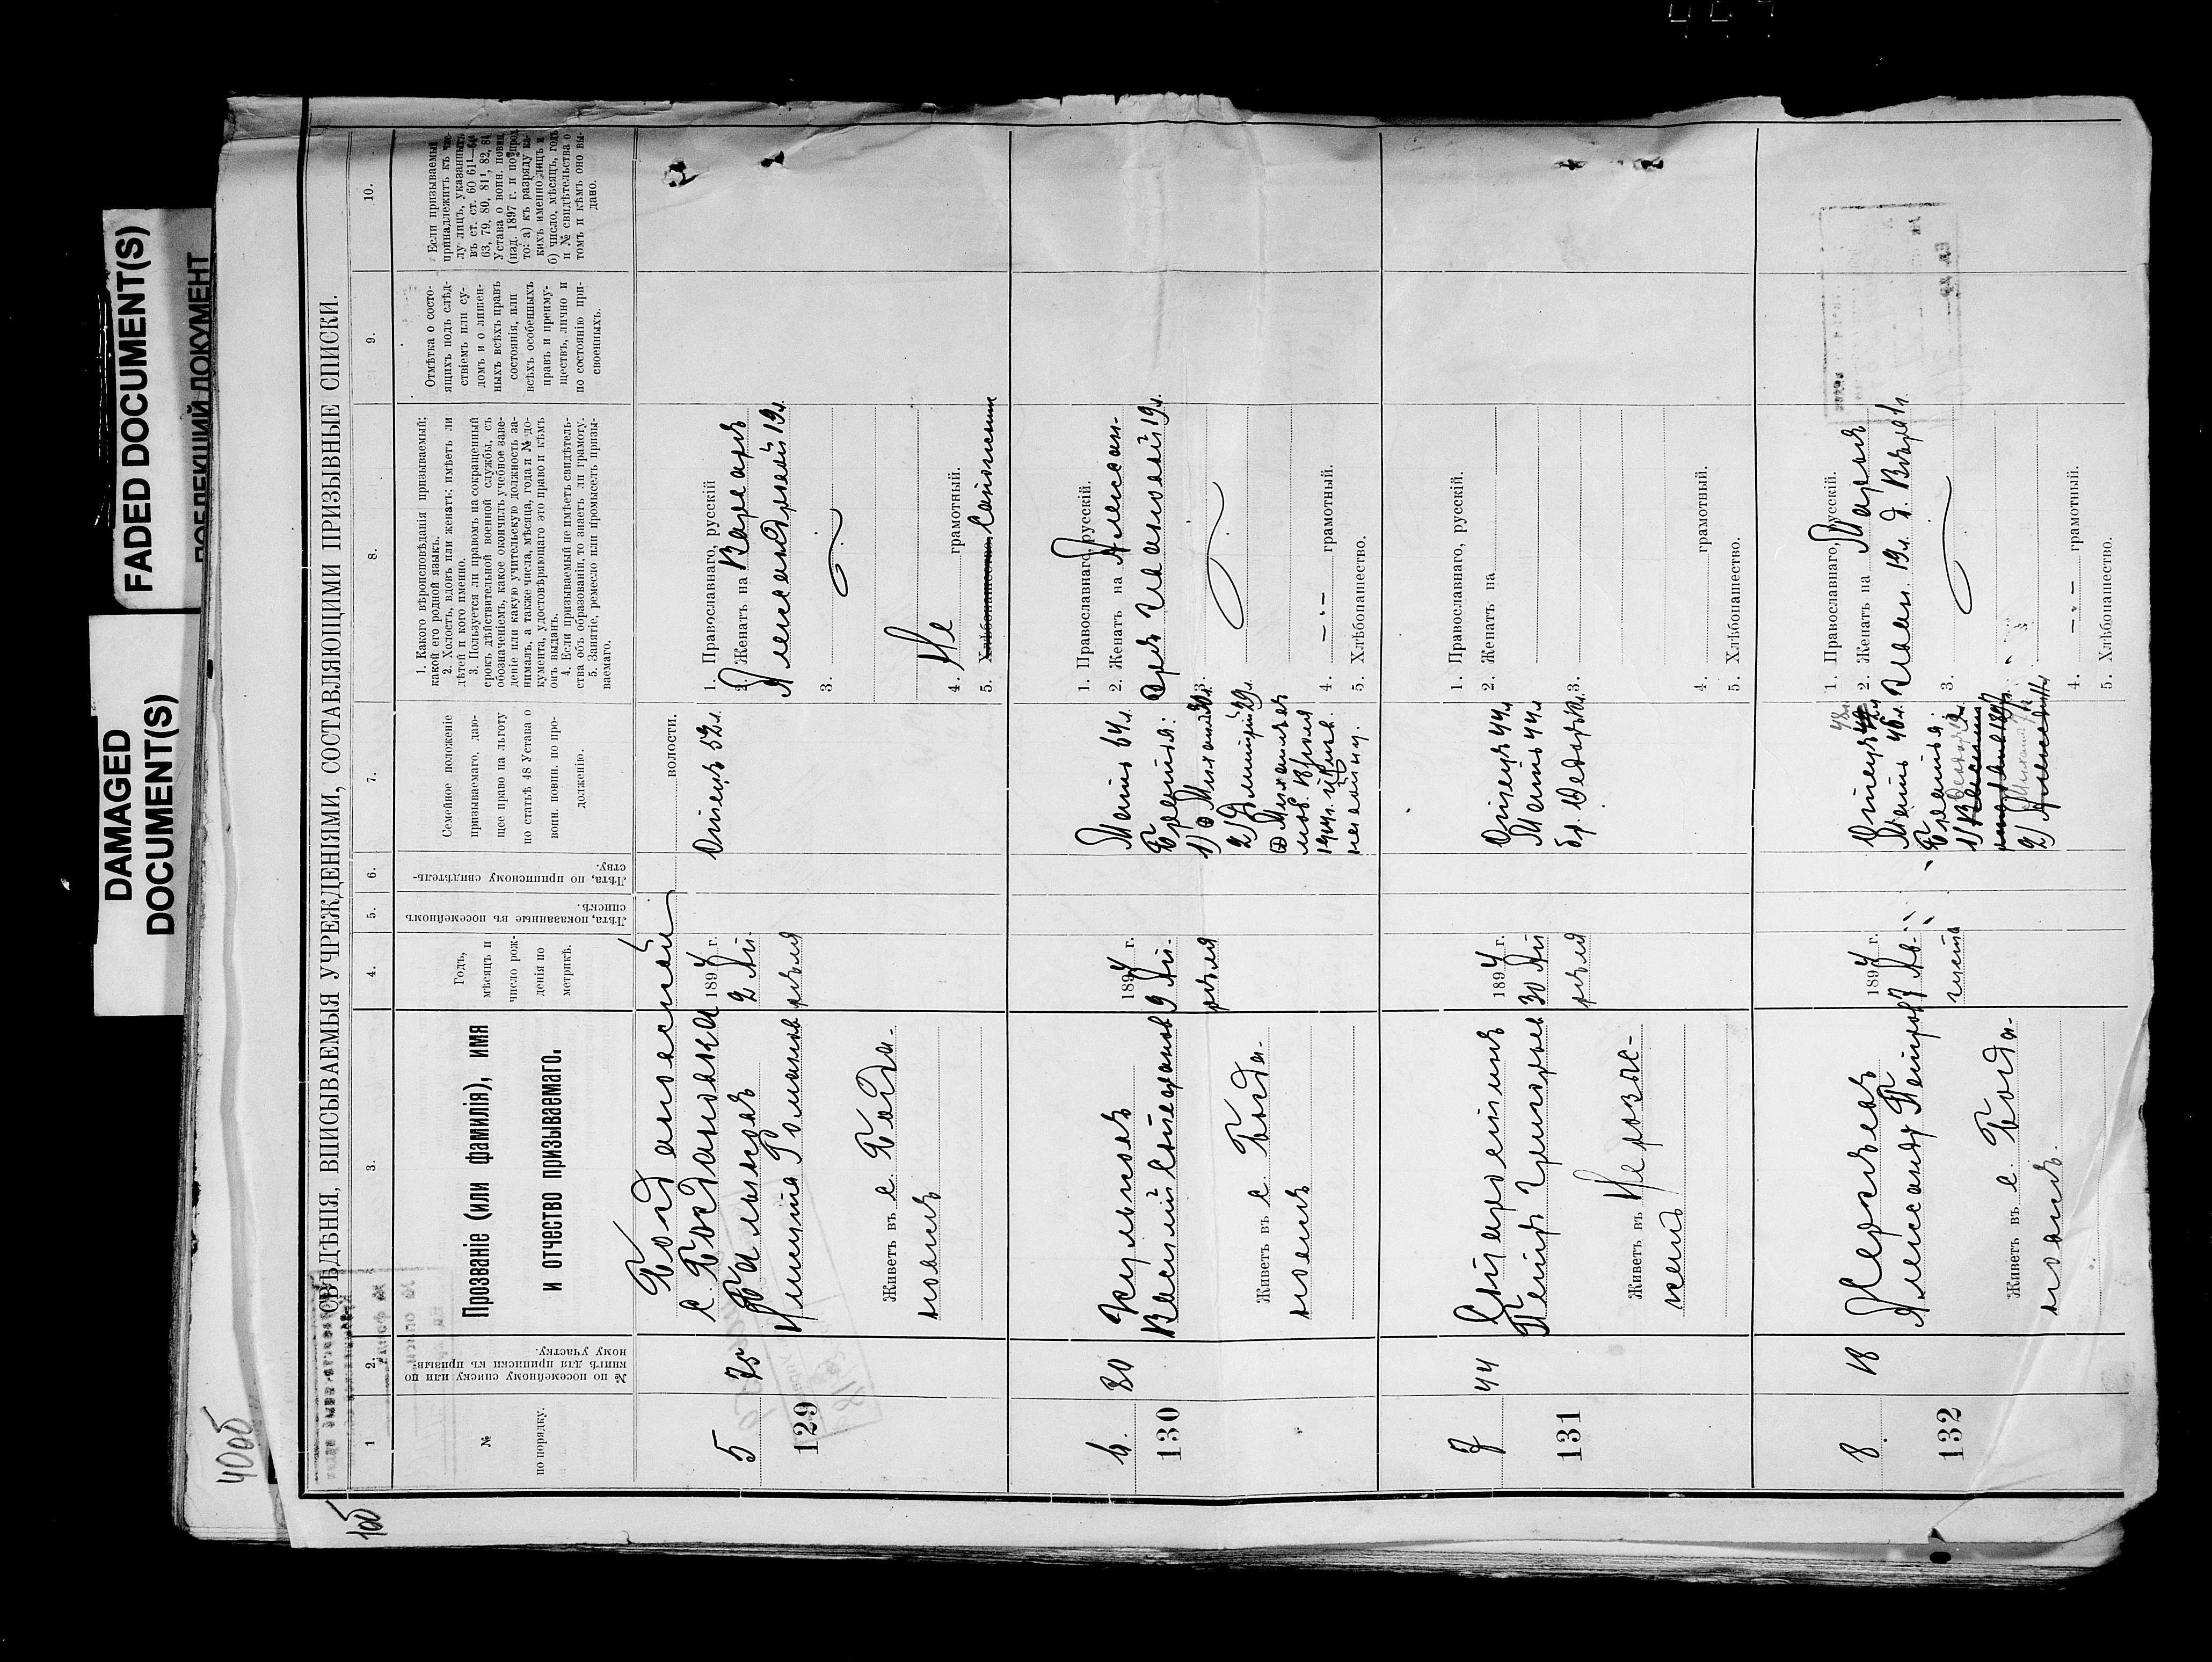 DAMAGED
DOCUMENT(S)
FADED DOCUMENT(S)
40об
1об
СВѢДѢНІЯ, ВПИСЫВАЕМЫЯ УЧРЕЖДЕНІЯМИ, СОСТАВЛЯЮЩИМИ ПРИЗЫВНЫЕ СПИСКИ.
1
№
по порядку.
2.
№ по посемейному списку или по
книгѣ для приписки къ призыв-
ному участку.
3.
Прозваніе (или фамилія), имя
и отчество призываемаго.
4.
Годъ,
мѣсяцъ и
число рож-
денія по
метрикѣ.
5.
Лѣта, показанные въ посемейномъ
спискѣ.
6.
Лѣта, по приписному свидѣтель-
ству.
7.
Семейное положеніе
призываемаго, даю-
щее право на льготу
по статьѣ 48 Устава о
воин. повин. по про-
долженію.
8.
1. Какого вѣроисповѣданія призываемый;
какой его родной языкъ.
2. Холостъ, вдовъ или женатъ; имѣетъ ли
дѣтей и кого именно.
3. Пользуется ли правомъ на сокращенный
срокъ дѣйствительной военной службы, съ
обозначеніемъ, какое окончилъ учебное заве-
деніе или какую учительскую должность за-
нималъ, а также числа, мѣсяца, года и № до-
кумента, удостовѣряющаго это право и кѣмъ
онъ выданъ.
4. Если призываемый не имѣетъ свидѣтель-
ства объ образованіи, то знаетъ ли грамоту.
5. Занятіе, ремесло или промыселъ призы-
ваемаго.
9.
Отмѣтка о состо-
ящихъ подъ слѣд-
ствіемъ или су-
домъ и о лишен-
ныхъ всѣхъ правъ
состоянія, или
всѣхъ особенныхъ
правъ и преиму-
ществъ, лично и
по состоянію при-
своенныхъ.
10.
Если призываемый
принадлежитъ къ чис-
лу лицъ, указанныхъ
въ ст. ст. 60 61¹—64¹
63, 79, 80, 81¹, 82, 84
Устава о воин. повин.
(изд. 1897 г. и по прод.
то: а) къ разряду ка-
кихъ именно лицъ и
б) число, мѣсяцъ, годъ
и № свидѣтельства о
томъ и кѣмъ оно вы-
дано.
Богдановской волости.
с. Богдановка
5
129
75
Никита Романов
Живетъ въ с. Богда-
новкѣ
1894 г.
2 Ап-
рѣля
Отецъ 52 л.
1. Православнаго, русскій
2. Женатъ на Варвара
Александровой 19 л.
3.
4. Не грамотный.
5. Хлѣбопашество, Сапожник
6.
130
30
Василий Степанов
Живетъ въ с. Богда-
новкѣ
1894 г.
9 Ап-
рѣля
Мать 64 л.
Братья:
1) Михаил
2) Дмитрий 29 л.
1. Православнаго, русскій.
2. Женатъ на Алексан-
дрѣ Ивановой 19 л.
3.
4. —.— грамотный.
5. Хлѣбопашество.
7
131
44
Старостинъ
Петръ Григорьев
Живетъ въ
1894 г.
30 Ап
рѣля
Отецъ 44 л
Мать 44 л
бр. Федоръ
1. Православнаго, русскій.
2. Женатъ на
3.
4. грамотный.
5. Хлѣбопашество.
8
132
18
Александр Петров
Живетъ въ с. Богда-
новкѣ.
1894 г.
7 Ав-
густа
Отецъ
Мать 46 л.
Братья:
1) Василий
2)
1. Православнаго, русскій.
2. Женатъ на Марья
Иван. 19 л. д. Варв. 1 г.
3.
4. —.— грамотный.
5. Хлѣбопашество.